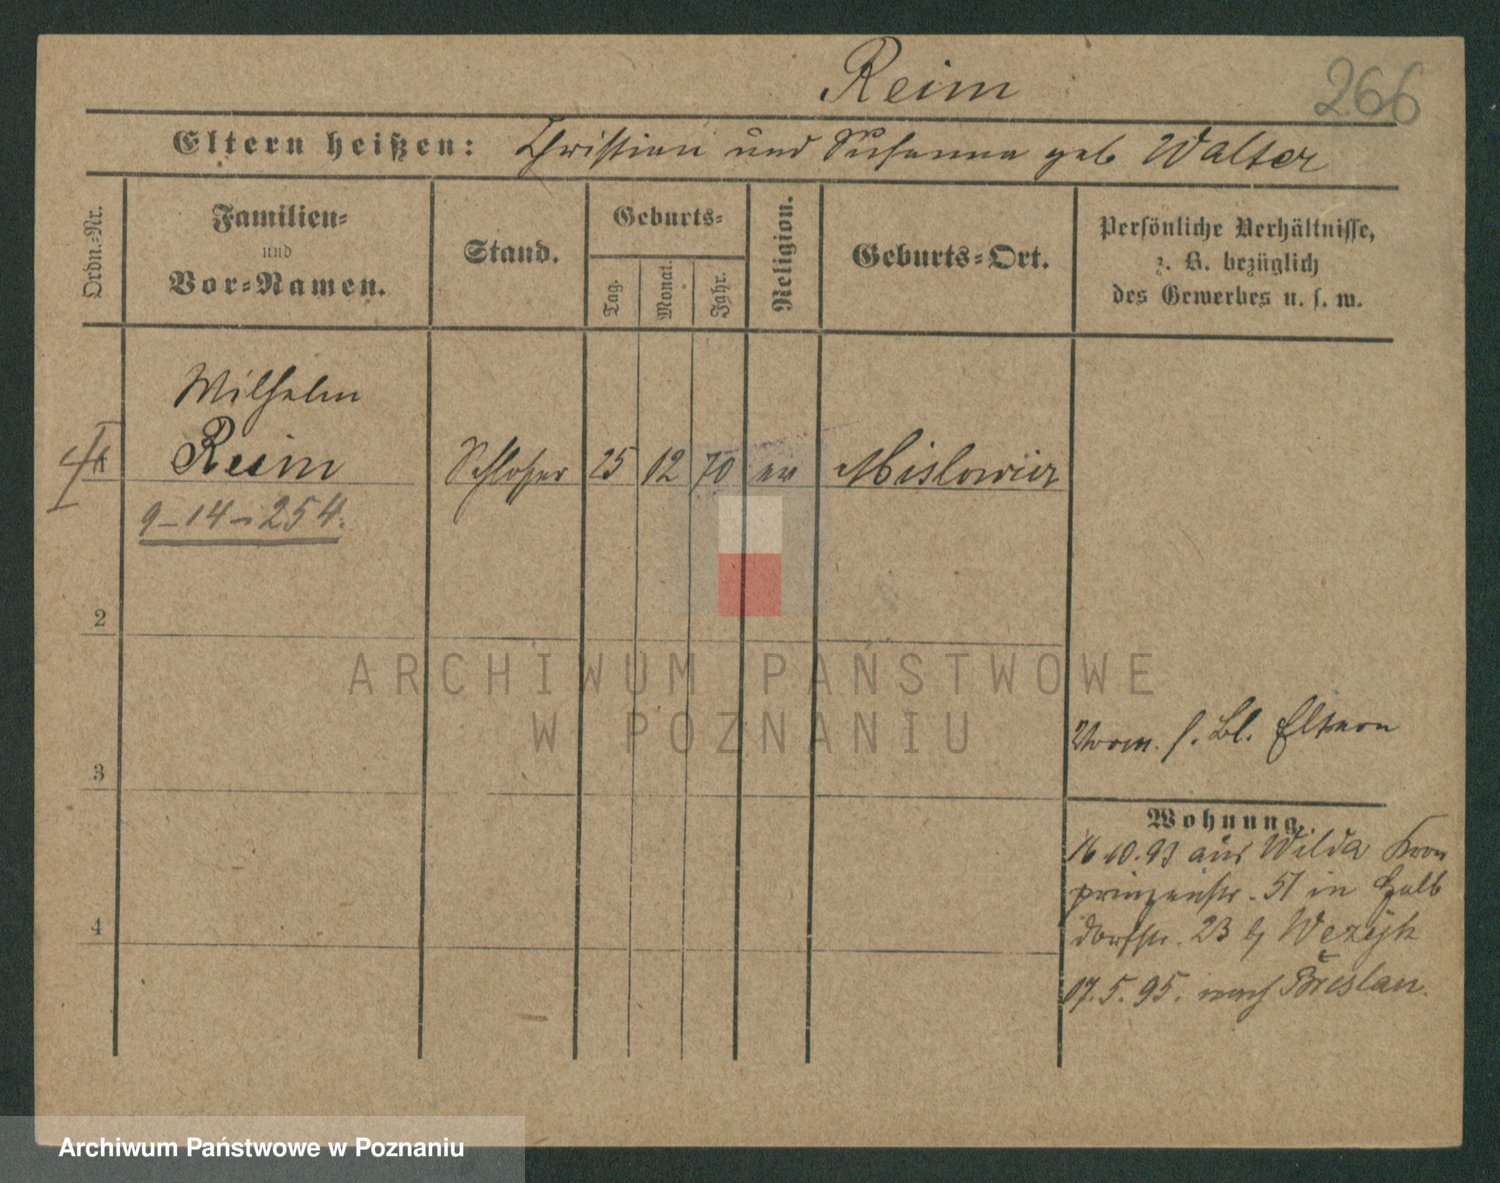 Reim
266
Eltern heißen: Christian und Susanna geb Walter
Ordn.-Nr.
Familien-
und
Vor-Namen.
Stand.
Geburts-
Tag.
Monat.
Jahr.
Religion.
Geburts-Ort.
Persönliche Verhältnisse,
z. B. bezüglich
des Gewerbes u. s. w.
Wilhelm
Reim
Schlosser 25 12 70 ev
9-14-254.
2
3
4
ARCHIWUM PAŃSTWOWE
W POZNANIU
Vorm. s. Bl. Eltern
Wohnung.
16.10.93 aus Wilda Kron
prinzenstr. 51 in Halb
dorfstr. 23 b/
17.5.95. nach Breslau.
Archiwum Państwowe w Poznaniu